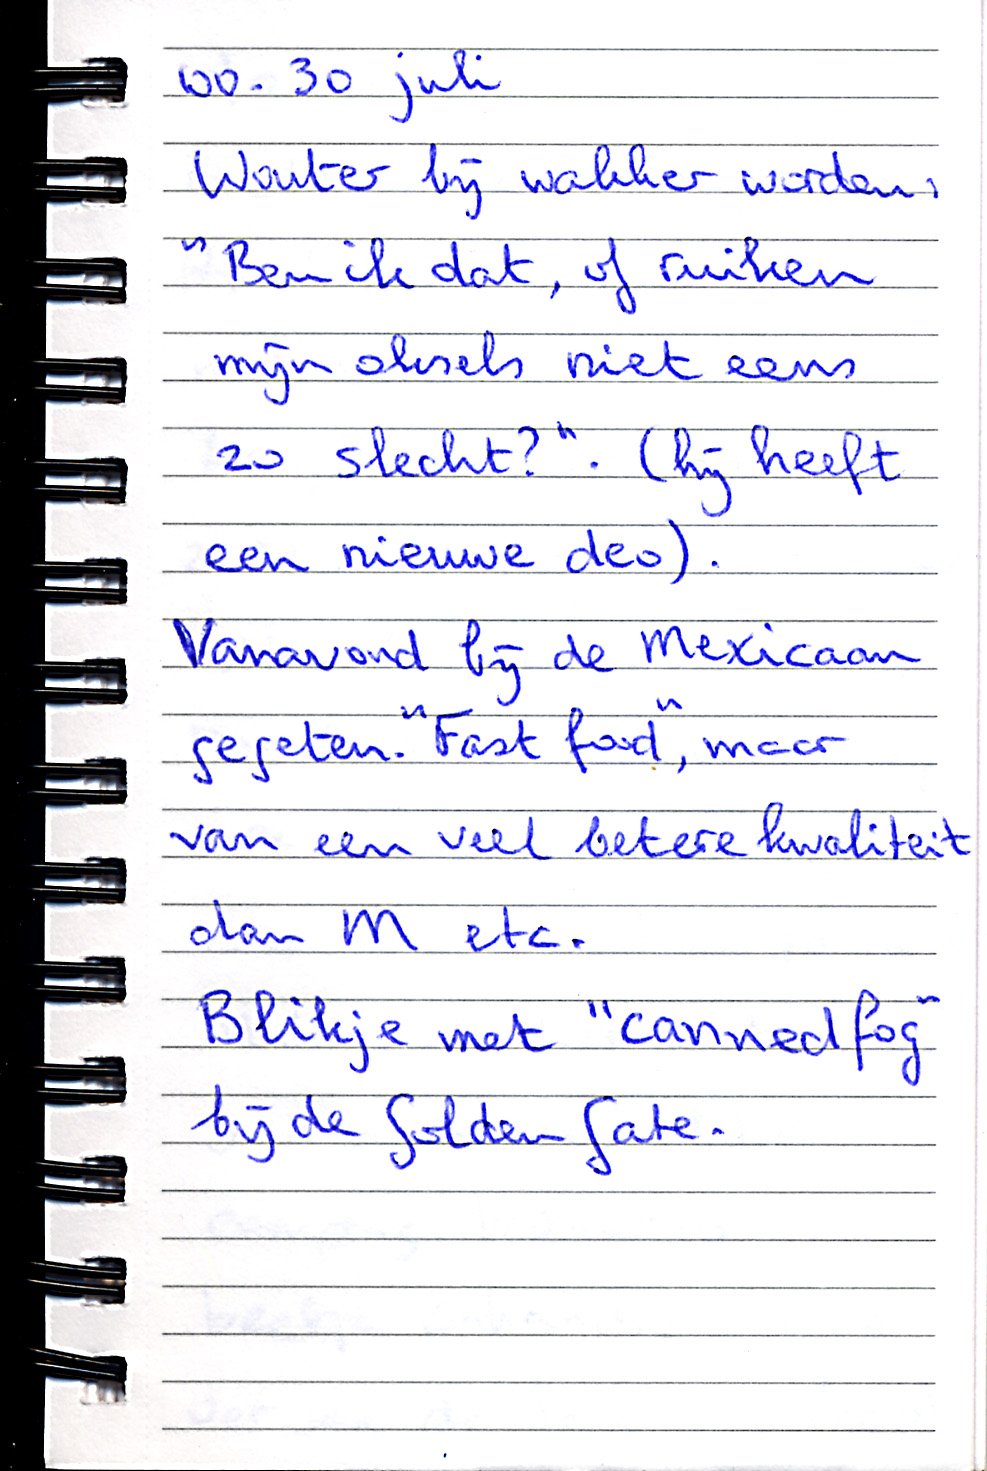 wo. 30 juli
Wouter bij wakker worden:
"Ben ik dat, of ruiken
mijn oksels niet eens
zo slecht?". (hij heeft
een nieuwe deo).
Vanavond bij de Mexicaan
gegeten. "Fast food", maar
van een veel betere kwaliteit
dan M etc.
Blikje met "canned fog"
bij de Golden Gate.